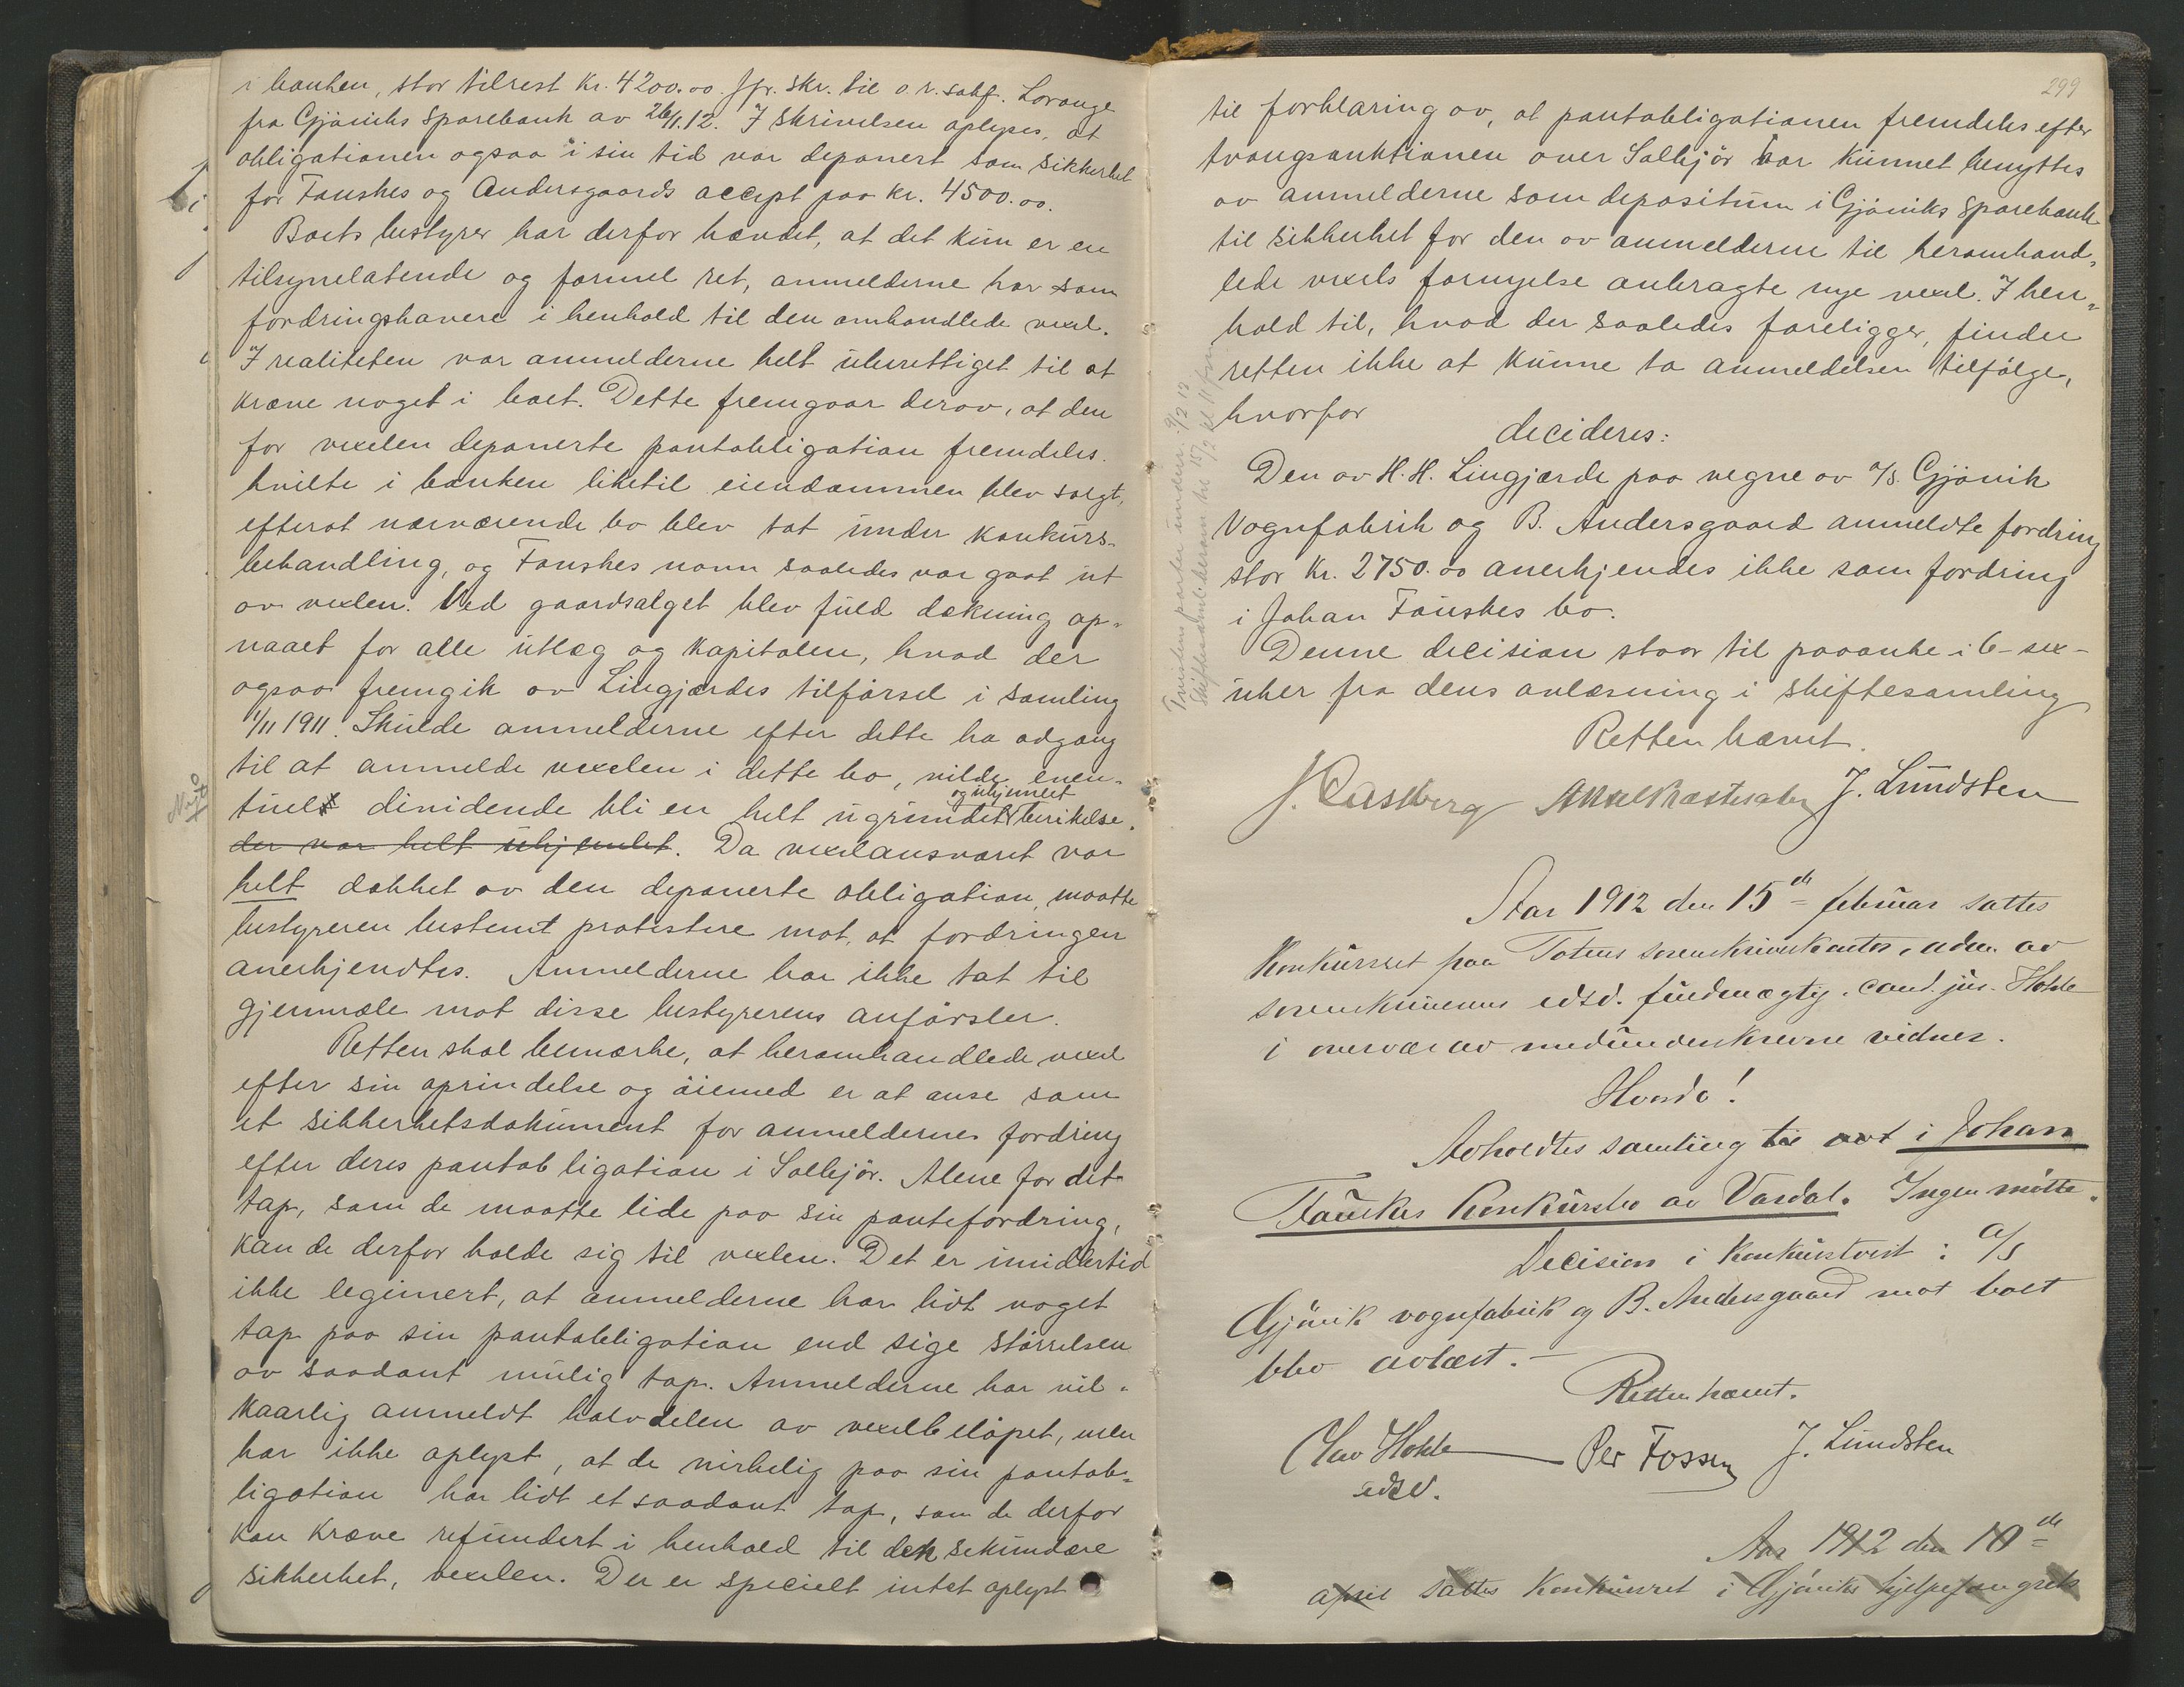 i banken, stor tilrest kr. 4200.00. Jfr. skr. til o.r.sakf. Lorange
fra Gjøviks sparebank av 26/1.12. I skrivelsen oplyses, at
obligationen ogsaa i sin tid var deponert som sikkerhet
for Fauskes og Andersgaards accept paa kr. 4500.00.
Boets bestyrer har derfor hævdet, at det kun er en
tilsynelatende og formel ret, anmelderne har som
fordringshavere i henhold til den omhandlede vexel.
I realiteten var anmelderne helt uberettiget til at
kræve noget i boet. Dette fremgaar derav, at den
for vexelen deponerte pantobligation fremdeles
hvilte i banken liketil eiendommen blev solgt,
efterat nærværende bo blev tat under konkurs-
behandling, og Fauskes navn saaledes var gaat ut
av vexlen. Ved gaardsalget blev fuld dækning op-
naaet for alle utlæg og kapitalen, hvad der
ogsaa fremgik av Lingjærdes tilførsel i samling
1/11 1911. Skulde anmelderne efter dette ha adgang
til at anmelde vexelen i dette bo, vilde even-
og uhjemlet
Nyt
tuel dividende bli en helt ugrundet berikelse.
der var helt uhjemlet. Da vexelansvaret var
helt dækket av den deponerte obligation, maatte
bestyreren bestemt protestere mot, at fordringen
anerkjendtes. Anmelderne har ikke tat til
gjenmæle mot disse bestyrerens anførsler.
Retten skal bemærke, at heromhandlede vexel
efter sin oprindelse og øiemed er at anse som
et sikkerhetsdokument for anmeldernes fordring
efter deres pantobligation i Solbjør. Alene for det
tap, som de maatte lide paa sin pantefordring,
kan de derfor holde sig til vexlen. Det er imidlertid
ikke legimert, at anmelderne har lidt noget
tap paa sin pantobligation end sige størrelsen
av saadant mulig tap. Anmelderne har vil-
kaarlig anmeldt halvdelen av vexelbeløpet, men
har ikke oplyst, at de virkelig paa sin pantob-
ligation har lidt et saadant tap, som de derfor
kan kræve refundert i henhold til den sekundære
sikkerhet, vexlen. Der er specielt intet oplyst
299
til forklaring av, at pantobligationen fremdeles efter
tvangsauktionen over Solbjør har kunnet benyttes
av anmelderne som depositum i Gjøviks sparebank
til sikkerhet for den av anmelderne til heromhand-
lede vexels fornyelse anbragte nye vexel. I hen-
hold til, hvad der saaledes foreligger, finder
retten ikke at kunne ta anmeldelsen tilfølge,
hvorfor
decideres:
Den av H. H. Lingjærde paa vegne av A/S. Gjøvik
Vognfabrik og B. Andersgaard anmeldte fordring
stor kr. 2750.00 anerkjendes ikke som fordring
i Johan Fauskes bo.
Denne decision staar til paaanke i 6 - sex -
uker fra dens avlæsning i skiftesamling
Retten hævet.
J. Castberg J. Lundsten
Aar 1912 den 15de februar sattes
Konkursret paa Totens sorenskriverkontor, adm. av
sorenskriverens edsv. fuldmægtig. cand. jur. Hohle
i overvær av medunderskrevne vidner.
Hvorda!
Avholdtes samling i Johan
Fauskes Konkursbo av Vardal. Ingen møtte.
Decision i Konkurstvist: A/S
Gjøvik vognfabrik og B. Andersgaard mot boet
blev avlæst. -
Retten hævet.
Olav Hohle Per Fossen J. Lundsten
edsv.
Aar 1912 den 10de
april sattes Konkursret i Gjøviks hjelpefængsels